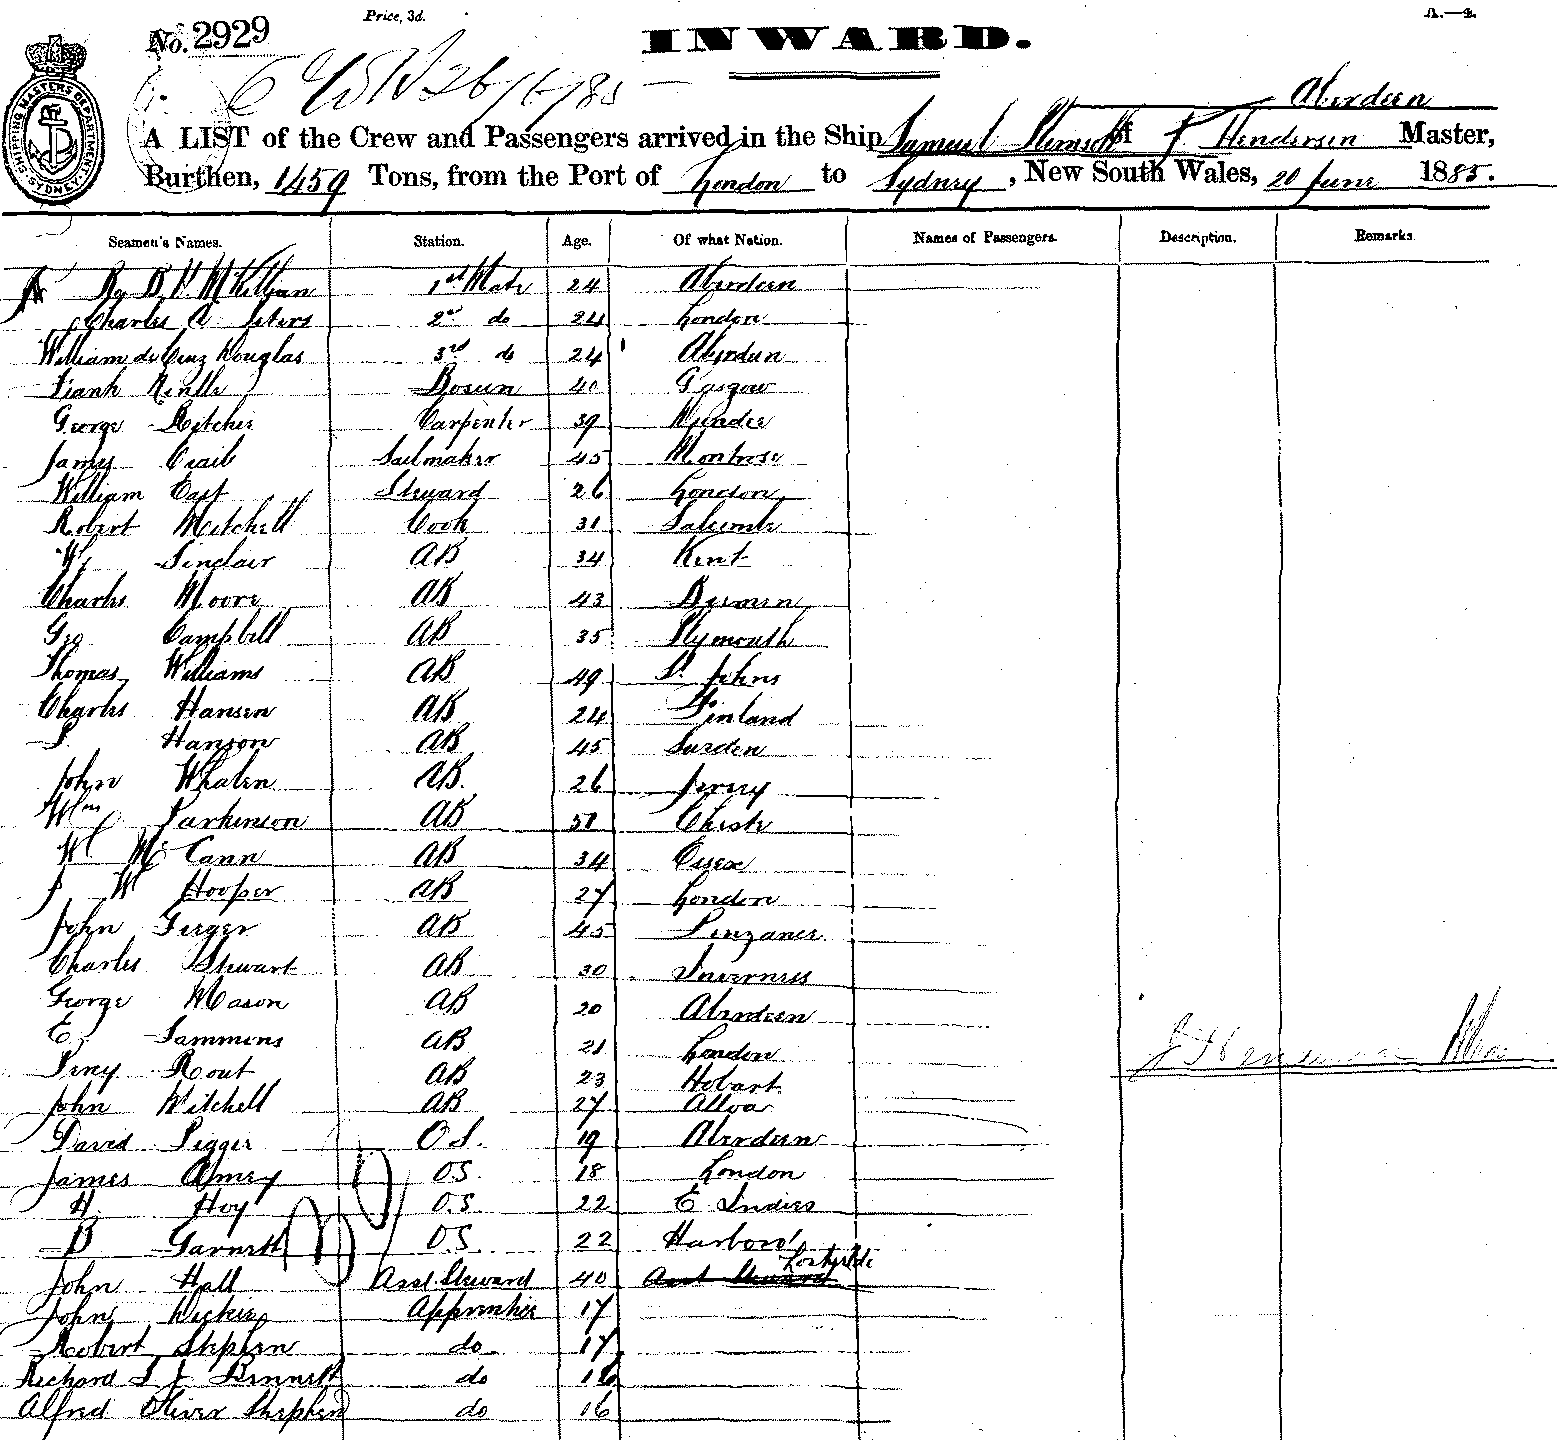 Price, 3d.
A.—4.
No. 2929
INWARD.
26/6/85
SHIPPING MASTERS DEPARTMENT. SYDNEY.
Aberdeen
A LIST of the Crew and Passengers arrived in the Ship Samuel Plimsoll of Henderson Master,
Burthen, 1459 Tons, from the Port of London to Sydney, New South Wales, 20 June 1885.
Seamen's Names. Station. Age. Of what Nation. Names of Passengers. Description. Remarks.
1st Mate 24 Aberdeen
Charles A Peters 2nd do 24 London
William de Cruz Douglas 3rd do 24 Aberdeen
Frank Bosun 40 Glasgow
George Ritchie Carpenter 39 Dundee
James Craib Sailmaker 45 Montrose
William East Steward 26 London
Robert Mitchell Cook 31 Salcombe
W Sinclair AB 34 Kent
Charles Moore AB 43 Bremen
Geo Campbell AB 35 Plymouth
Thomas Williams AB 49 St Johns
Charles Hansen AB 24 Finland
Hanson AB 45 Sweden
John Whalen AB. 26 Jersey
Wm Parkinson AB Chester
W McCann AB 34 Essex
J W Hooper AB 27 London
John AB 45 Penzance
Charles Stewart AB 30 Inverness
George Mason AB 20 Aberdeen
E Sammons AB 21 London
Percy Rout AB 23 Hobart
John Mitchell AB 27 Alloa
David Pegger O S. 19 Aberdeen
James Amey O.S 18 London
H Hoy O.S 22 E Indies
B Garnett O.S. 22 Harboro'
John Hall Asst. Steward 40 Asst Steward
John Apprentice 17
Robert Stephen do 17
Richard Bennett do 16
Alfred Oliver Stephen do 16